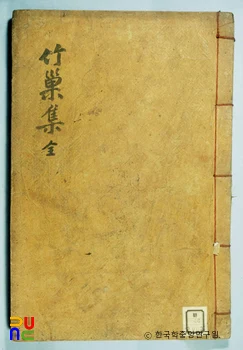 竹巢集 全
PUNE
© 한국학중앙연구원